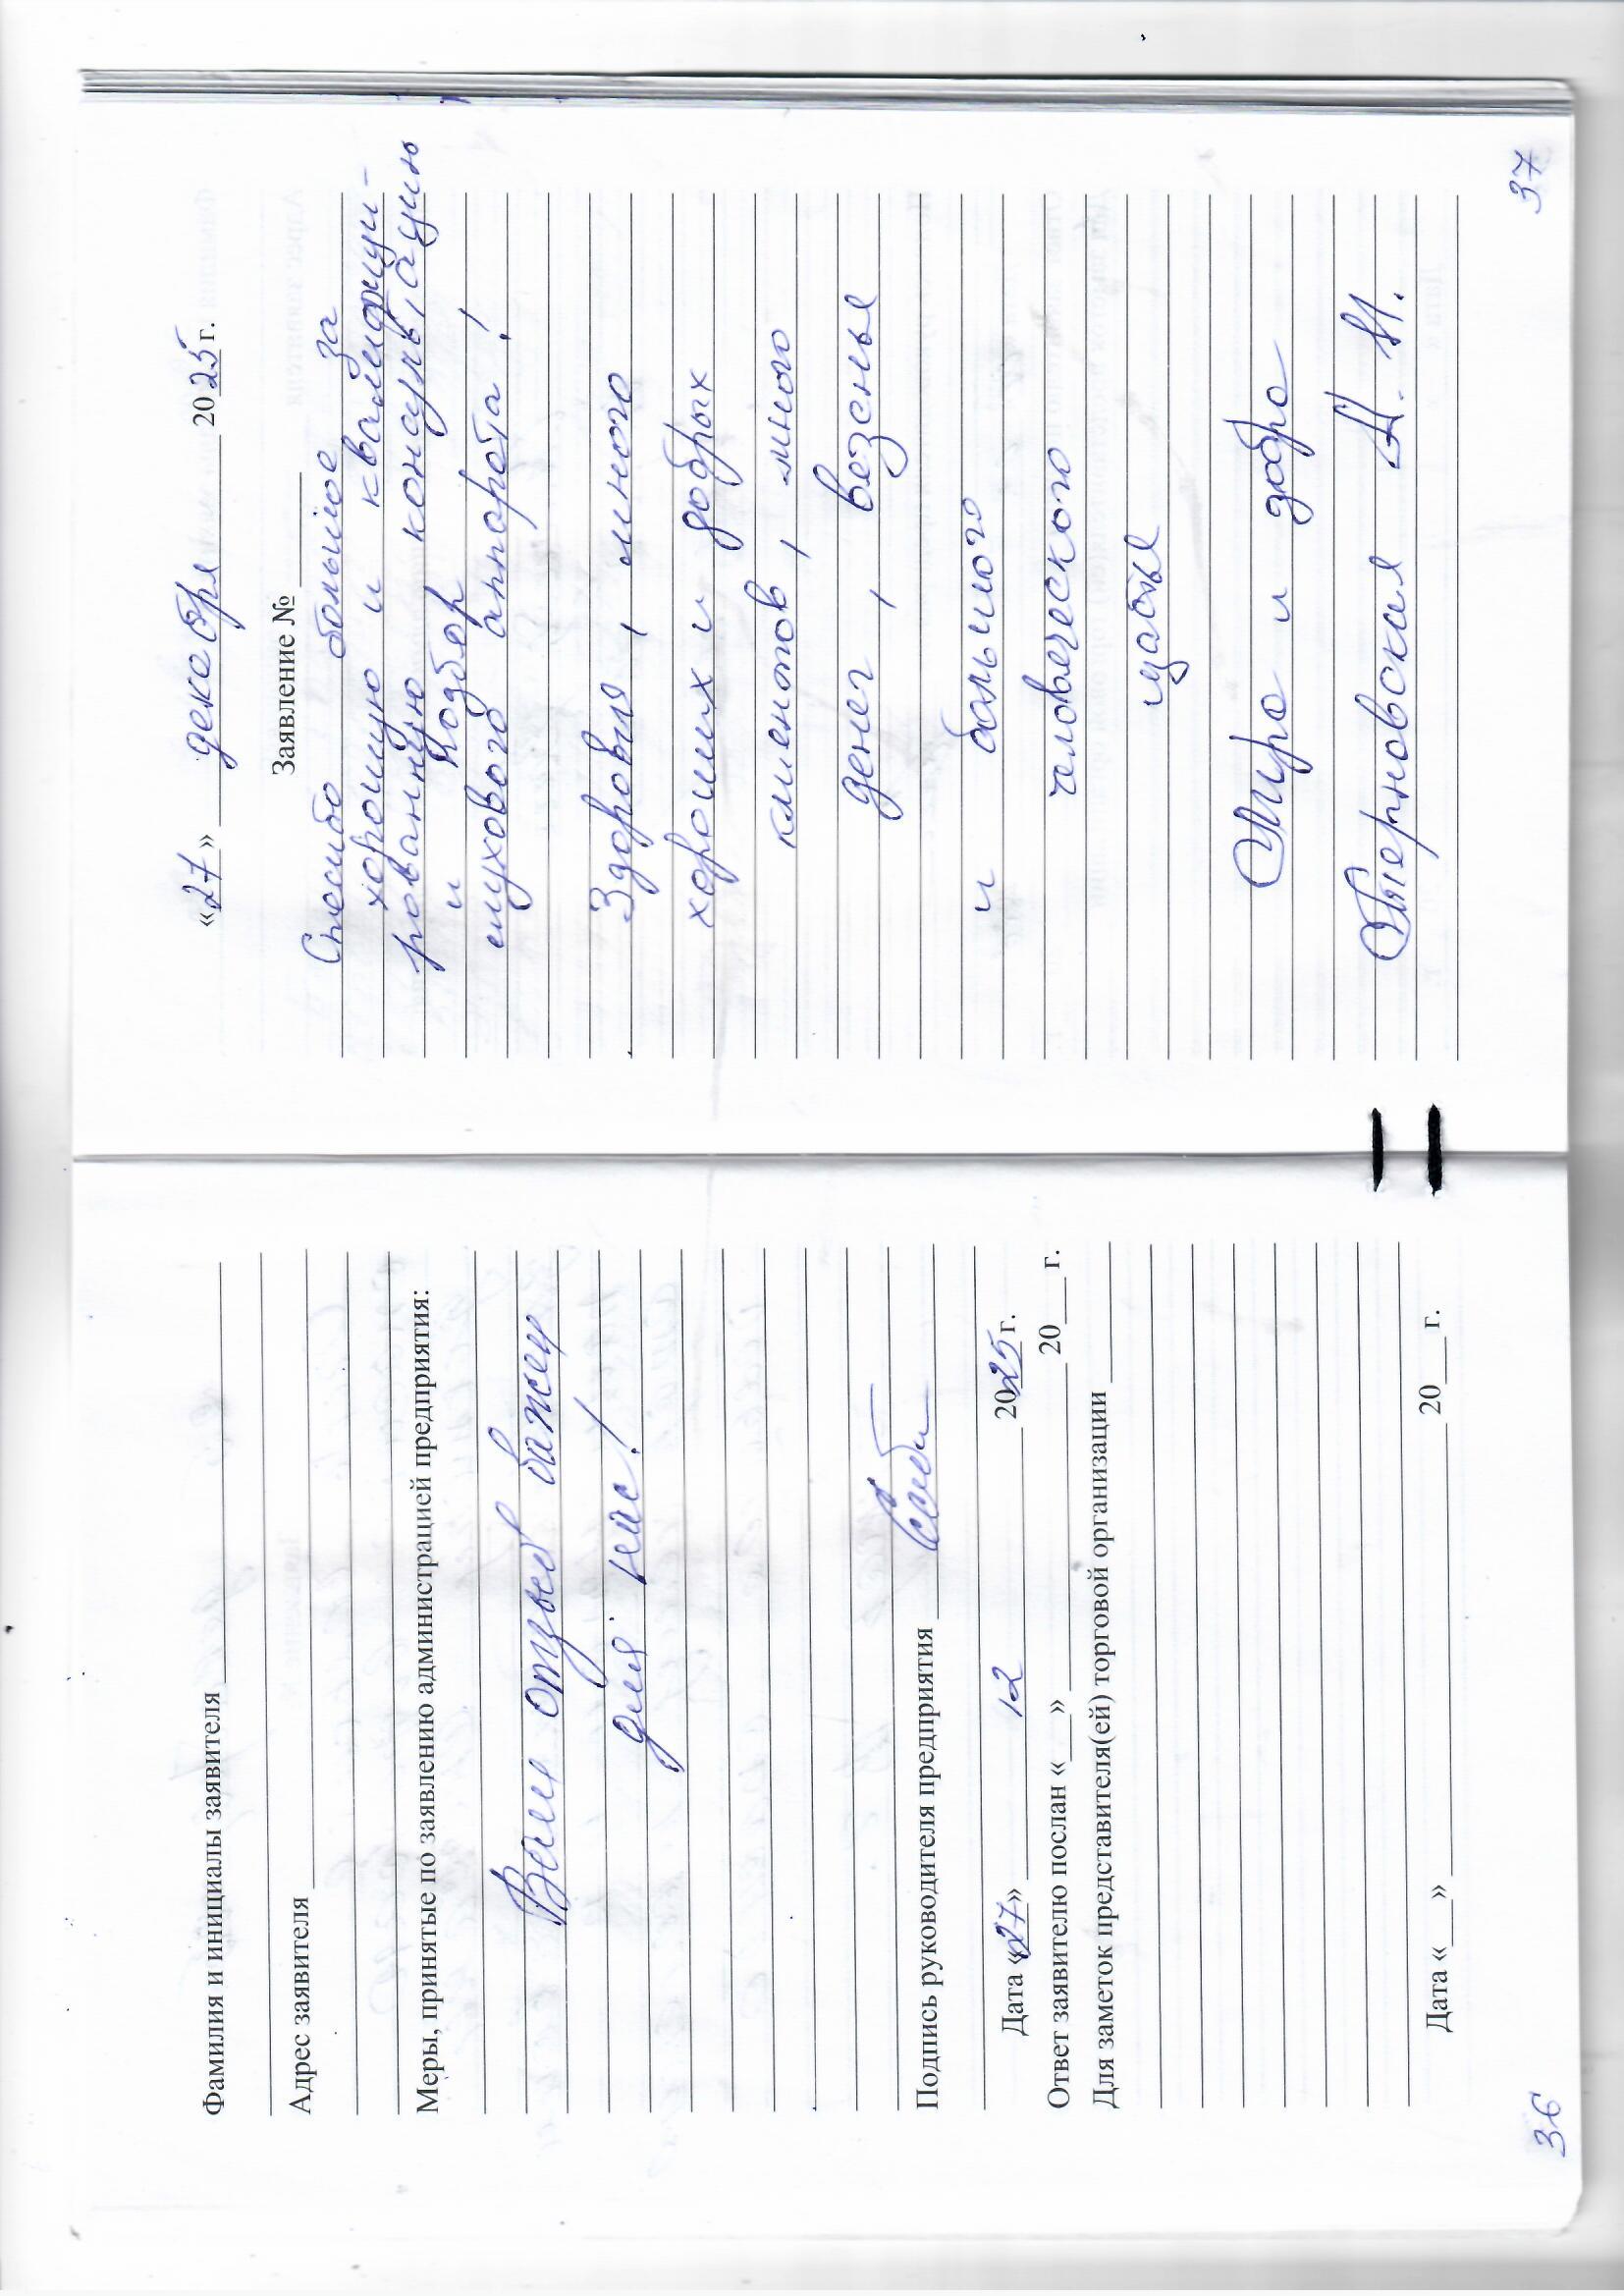 Фамилия и инициалы заявителя
Адрес заявителя
Меры, принятые по заявлению администрацией предприятия:
Ваш отзыв важен
для нас!
Подпись руководителя предприятия
Дата «27» 12 2025 г.
Ответ заявителю послан «___» 20___ г.
Для заметок представителя(ей) торговой организации
Дата «___» 20___ г.
36
«27» декабря 2025 г.
Заявление №
Спасибо большое за
хорошую и квалифици-
рованную консультацию
и подбор
слухового аппарата!
Здоровья, много
хороших и добрых
клиентов, много
денег, везенья
и большого
человеческого
счастья
Мира и добра
М.
37